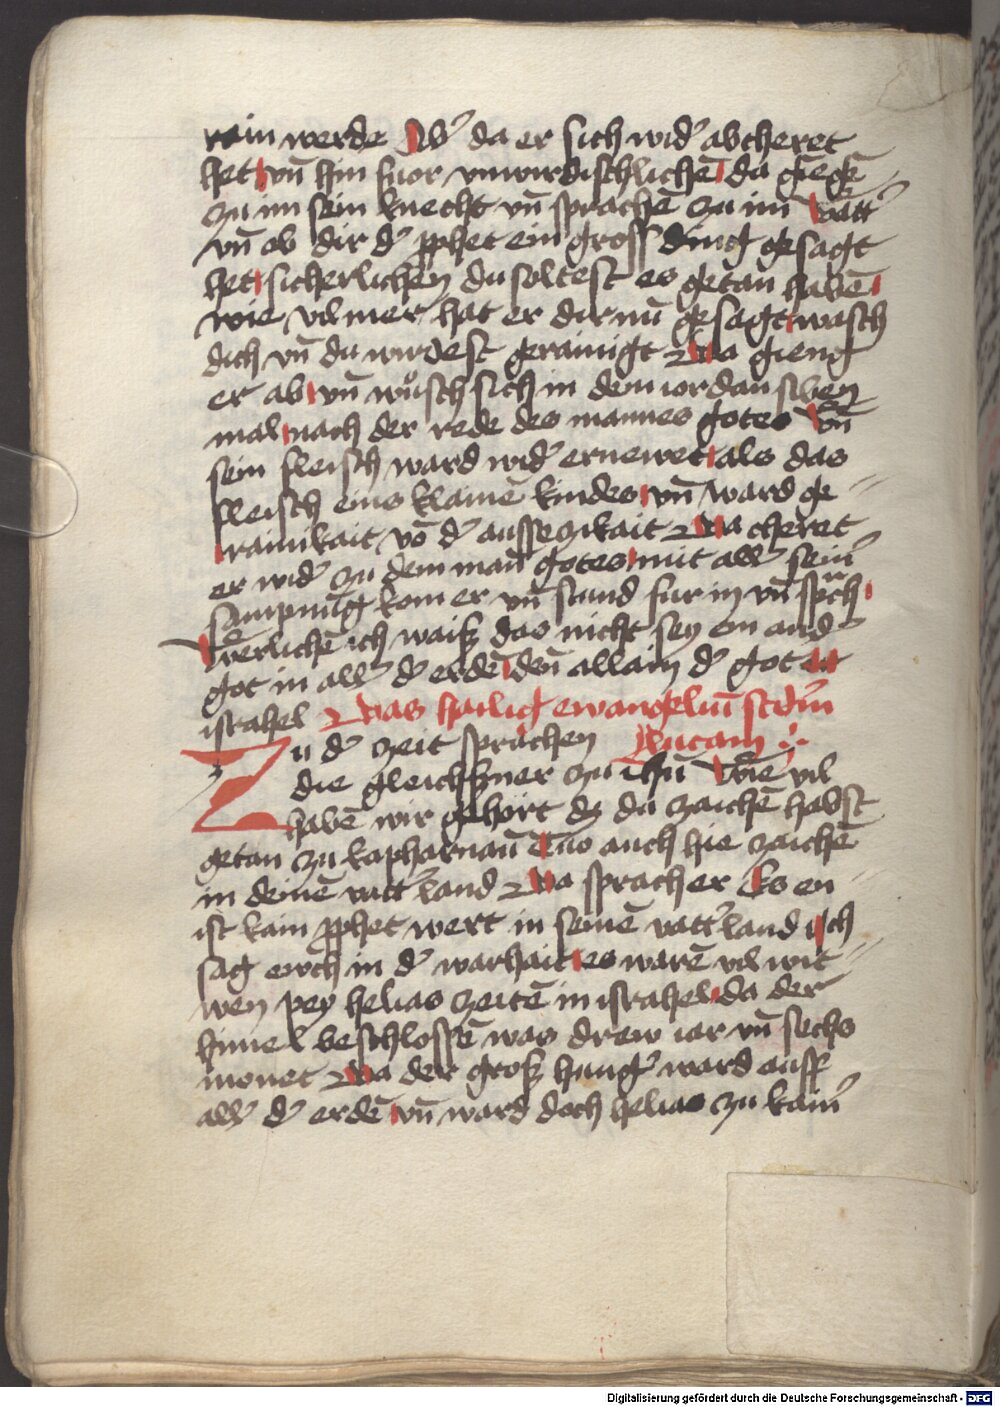 rain werde Abʼ da er sich widʼ abcheret
het vn̄ hin fuor vnwirdischlichē da giēgē
zu im sein knecht vn̄ sprachē zu im vattʼ
vn̄ ob dir dʼ pphet ein gross ding gesagt
het sicherlichen du soltest es getan habē
wie vil mer hat er dir nu gesagt wasch
dich vn̄ du wirdest gerainigt Da gieng
er ab vn̄ wůsch sich in dem iordan siben
mal nach der rede des mannes gotes Vn̄
sein fleisch ward widʼ ernewet als das
fleisch eins klainē kindes vn̄ ward ge
rainikait vō dʼ aussezikait Da cheret
er widʼ zu dem man̄ gotes mit allʼ seinʼ
sampnūg kom er vn̄ stund fur in vn̄ sprͣch
Werlichē ich waiß das nicht sey ein andʼ
got in allʼ dʼ erdē den̄ allain dʼ got in
israhel Das hailig ewangeliū scd̄m
Zu dʼ zeit sprachen Lucam
die gleichßner zu ihū Wie vil
habē wir gehört dz du zaichē habst
getan zu kapharnau̅ Tuo auch hie zaichē
in deinē vattʼland Da sprach er Es en
ist kain pphet wert in seinē vattʼland ich
sag ewch in dʼ warhait es warē vil wit
wen pey helias zeitē in israhel da der
himel beschlossē was drew iar vn̄ sechs
monet Da der groß hungʼ ward auff
allʼ dʼ erdē vn̄ ward doch helias zu kainʼ
Digitalisierung gefördert durch die Deutsche Forschungsgemeinschaft - DFG